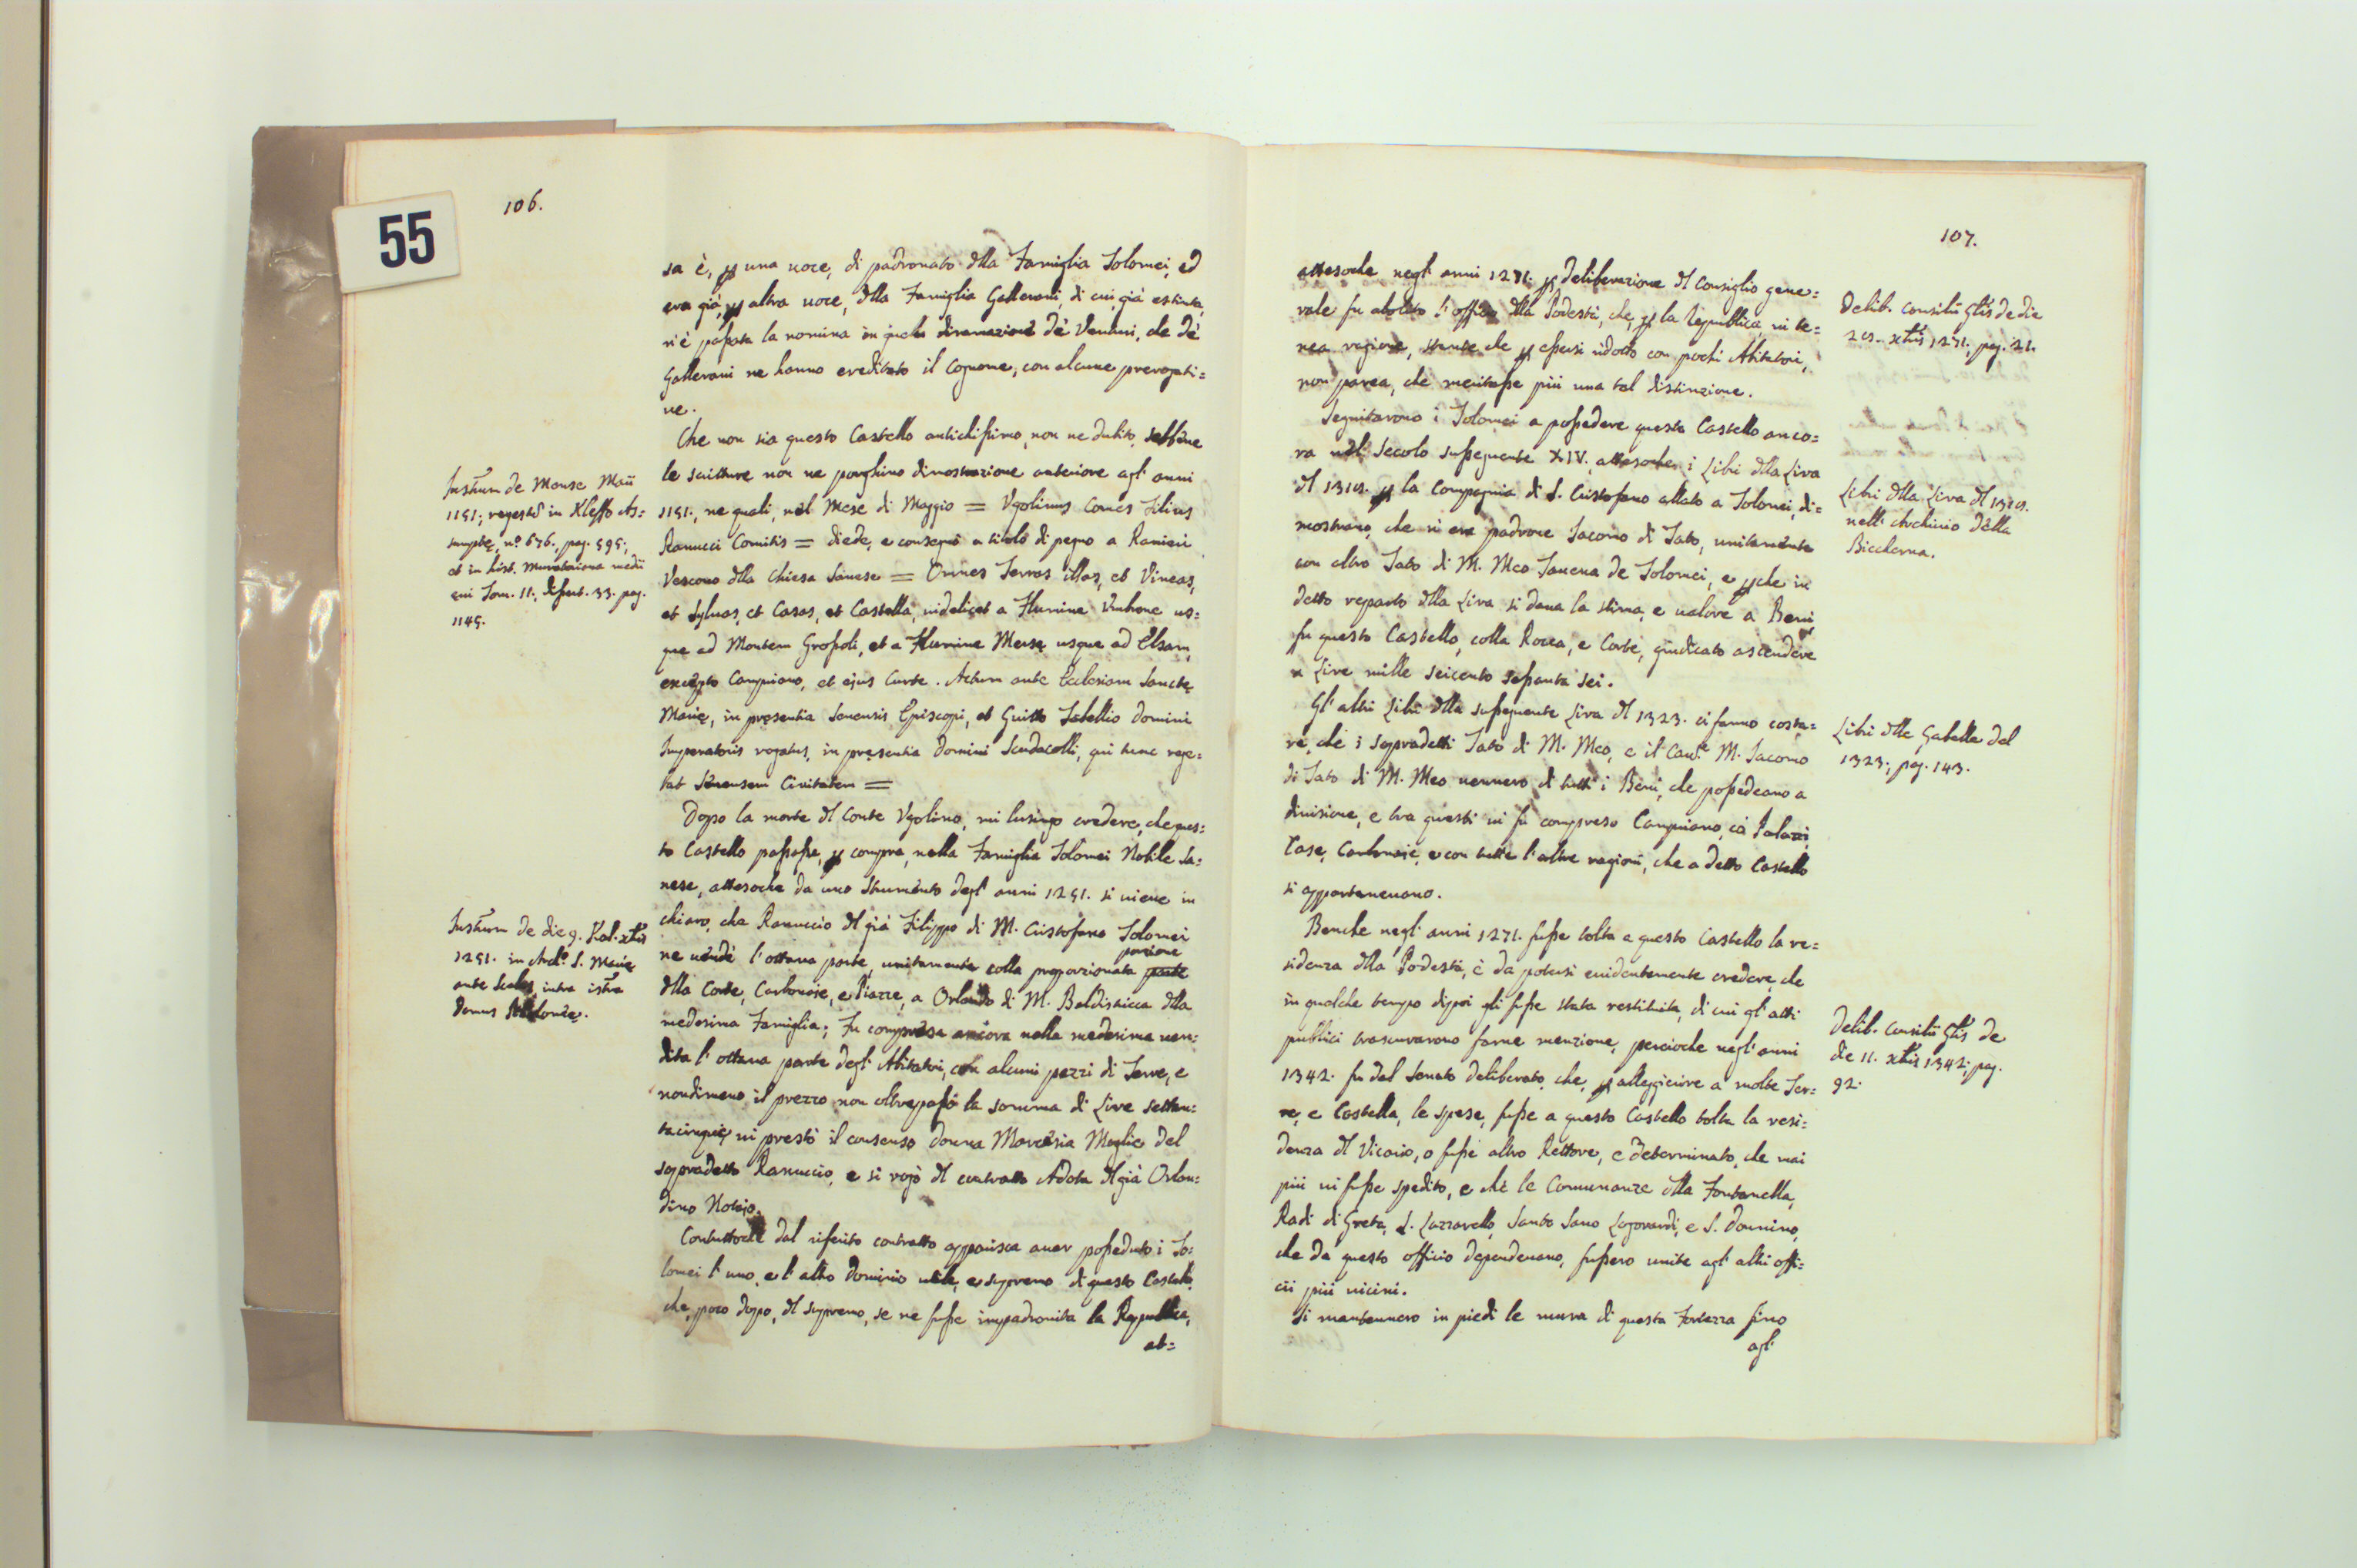 55
106.
sa è, p una voce, di padronato dlla Famiglia Tolomei, ed
era già, p altra voce, dlla Famiglia Gallerani, di cui, già estinta,
n'è passata la nomina in quelli diramazione de' Venturi, che de'
Gallerani ne hanno ereditato il Cognome, con alcune prerogati=
ve.
Che non sia questo Castello antichissimo, non ne dubito, sebbene
le scritture non ne porghino dimostrazione anteriore agl' anni
1151., ne quali, nel Mese di Maggio = Vgolinus Comes Filius
Ranucci Comitis = diede, e consegnò a titolo di pegno a Ranieri
Vescovo dlla Chiesa Sanese = Omnes Terras illas, et Vineas,
et Sylvas, et Casas, et Castella, videlicet a Flumine Umbrone us=
que ad Montem Grossoli, et a Flumine Merse usque ad Elsam,
excepto Campriano, et ejus Curte. Actum ante Ecclesiam Sancte
Marie, in presentia Senensis Episcopi, et Guitto Tabellio Domini
Imperatoris rogatus, in presentia Domini Scudacolli, qui tunc rege=
bat Senensem Civitatem =
Dopo la morte dl Conte Vgolino, mi lusingo credere, che ques=
to Castello passasse, p compra, nella Famiglia Tolomei Nobile Sa=
nese, attesoche da uno Strumento degl' anni 1251. si viene in
chiaro, che Ranuccio dl già Filippo di M. Cristofano Tolomei
ne vendè l'ottava parte, unitamente colla proporzionata parte porzione
dlla Corte, Carbonaie, e Piazze, a Orlando di M. Baldistricca dlla
medesima Famiglia; Fu compresa ancora nella medesima ven=
dita l'ottava parte degl' Abitatori, con alcuni pezzi di Terre, e
nondimeno il prezzo non oltrepassò la somma di Lire settan=
tacinque, vi prestò il consenso Donna Marcesia Moglie del
sopradetto Ranuccio, e si rogò dl contratto Adota dl già Orlan=
dino Notaio.
Contuttoche dal riferito contratto apparisca aver posseduto i To=
lomei l'uno, e l'altro Dominio utile, e supremo di questo Castello,
che, poco dopo, dl supremo, se ne fusse impadronita la Republica,
at=
Instrum de Mense Maii
1151., regestũ in Kleffo As=
sumpte, n.º 676., pag. 595.,
et in hist. Muratoriana medii
evi Tom. 11. dissert. 33. pag.
1145.
Instrum de die 9. Kal. xbris
1251. in Arch.º S. Marie
ante Scalas, intra istra
Domus
107.
attesoche negl' anni 1271. p deliberazione dl Consiglio gene=
rale fu abolito l'offizio dlla Podestà, che, p la Republica, vi te=
nea ragione, stante che p essersi ridotto con pochi Abitatori,
non parea, che meritasse più una tal distinzione.
Seguitarono i Tolomei a possedere questo Castello anco=
ra nel Secolo susseguente XIV., attesoche i Libri dlla Lira
dl 1318. p la Compagnia di S. Cristofano allato a Tolomei, di=
mostrano, che vi era padrone Iacomo di Tato, unitamente
con altro Tato di M. Meo Tavena de Tolomei, e pche in
detto reparto dlla Lira si dava la stima, e valore a Beni,
fu questo Castello, colla Rocca, e Corte, giudicato ascendere
a Lire mille seicento sessanta sei.
Gl' altri Libri dlla susseguente Lira dl 1323. ci fanno costa=
re, che i sopradetti Tato di M. Meo, e il Cavr.e M. Iacomo
di Tato di M. Meo vennero di tutti i Beni, che possedeano a
divisione, e tra questi vi fu compreso Campriano, có Palazzi,
Case, Carbonaie, e con tutte l'altre ragioni, che a detto Castello
si appartenevano.
Benche negl' anni 1271. fusse tolta a questo Castello la re=
sidenza dlla Podestà, è da potersi evidentemente credere, che
in qualche tempo dipoi gli fusse stata restituita, di cui gl' atti
publici trascurarono farne menzione, percioche negl' anni
1342. fu dal Senato deliberato, che, p alleggierire a molte Ter=
re, e Castella, le spese, fusse a questo Castello tolta la resi=
denza dl Vicario, o fusse altro Rettore, e determinato, che mai
più vi fusse spedito, e che le Comunanze dlla Fontanella,
Radi di Greta, S. Lazzarello, Santo Sano Logorardi, e S. Donnino,
che da questo officio dependevano, fussero unite agl' altri offi=
cii più vicini.
Si mantennero in piedi le mura di questa Fortezza sino
agl'
Delib. Consilii Glis de die
28. xbris 1271., pag. 21.
Libri dlla Lira dl 1318.
nell' Archivio della
Biccherna.
Libri dlle Gabelle del
1323., pag. 143.
Delib. Consilii Glis de
die 11. xbris 1342., pag.
92.